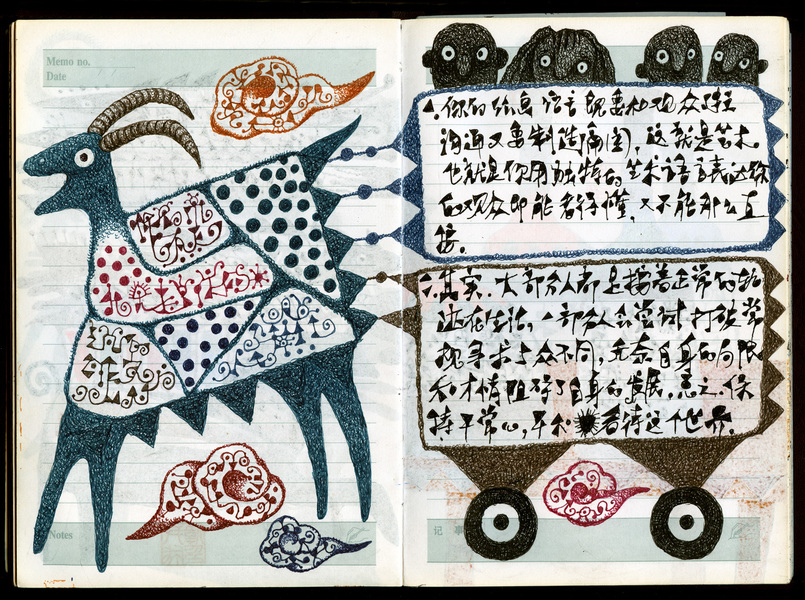 Memo no.
Date
Notes
你的信息语言既要和观众
沟通又要制造隔阂，这就是艺术。
也就是你用独特的艺术语言表达给
的观众即能看得懂，又不能那么直
接。
其实、大部分人都是按着正常的轨
迹在生活。一部分人会尝试打破常
规寻求与众不同，无奈自身的局限
和才情阻碍了自身的发展，总之、保
持平常心，平和看待这个世界。
记 事